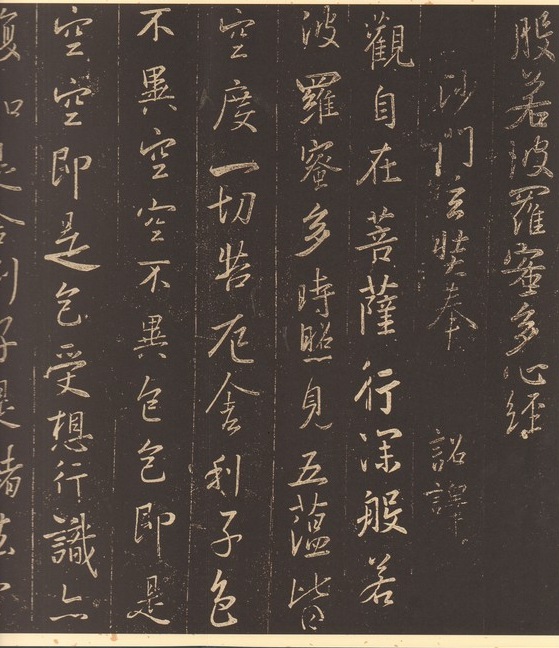 般若波羅蜜多心經
沙門玄奘奉　詔譯
觀自在菩薩行深般若
波羅蜜多時照見五蕴皆
空度一切苦厄舍利子色
不異空空不異色色即是
空空即是色受想行識亦
復如是舍利子是諸法空